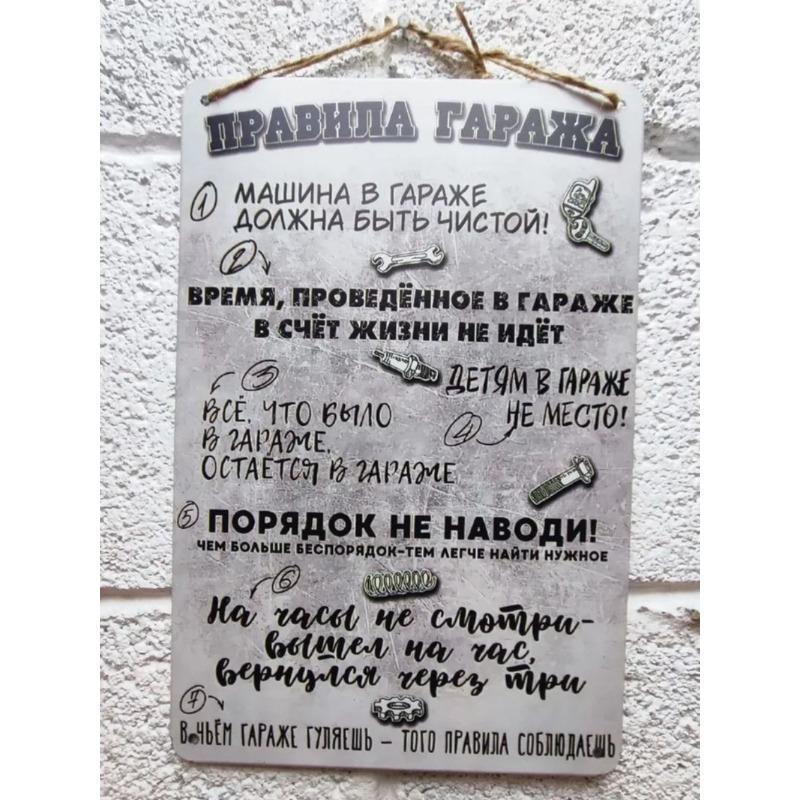 ПРАВИЛА ГАРАЖА
1 МАШИНА В ГАРАЖЕ
ДОЛЖНА БЫТЬ ЧИСТОЙ!
2
ВРЕМЯ, ПРОВЕДЁННОЕ В ГАРАЖЕ
В СЧЁТ ЖИЗНИ НЕ ИДЁТ
3
ВСЁ, ЧТО БЫЛО
В ГАРАЖЕ,
ОСТАЁТСЯ В ГАРАЖЕ
ДЕТЯМ В ГАРАЖЕ
4 НЕ МЕСТО!
5 ПОРЯДОК НЕ НАВОДИ!
ЧЕМ БОЛЬШЕ БЕСПОРЯДОК-ТЕМ ЛЕГЧЕ НАЙТИ НУЖНОЕ
6
На часы не смотри-
вышел на час,
вернулся через три
7
В ЧЬЁМ ГАРАЖЕ ГУЛЯЕШЬ – ТОГО ПРАВИЛА СОБЛЮДАЕШЬ